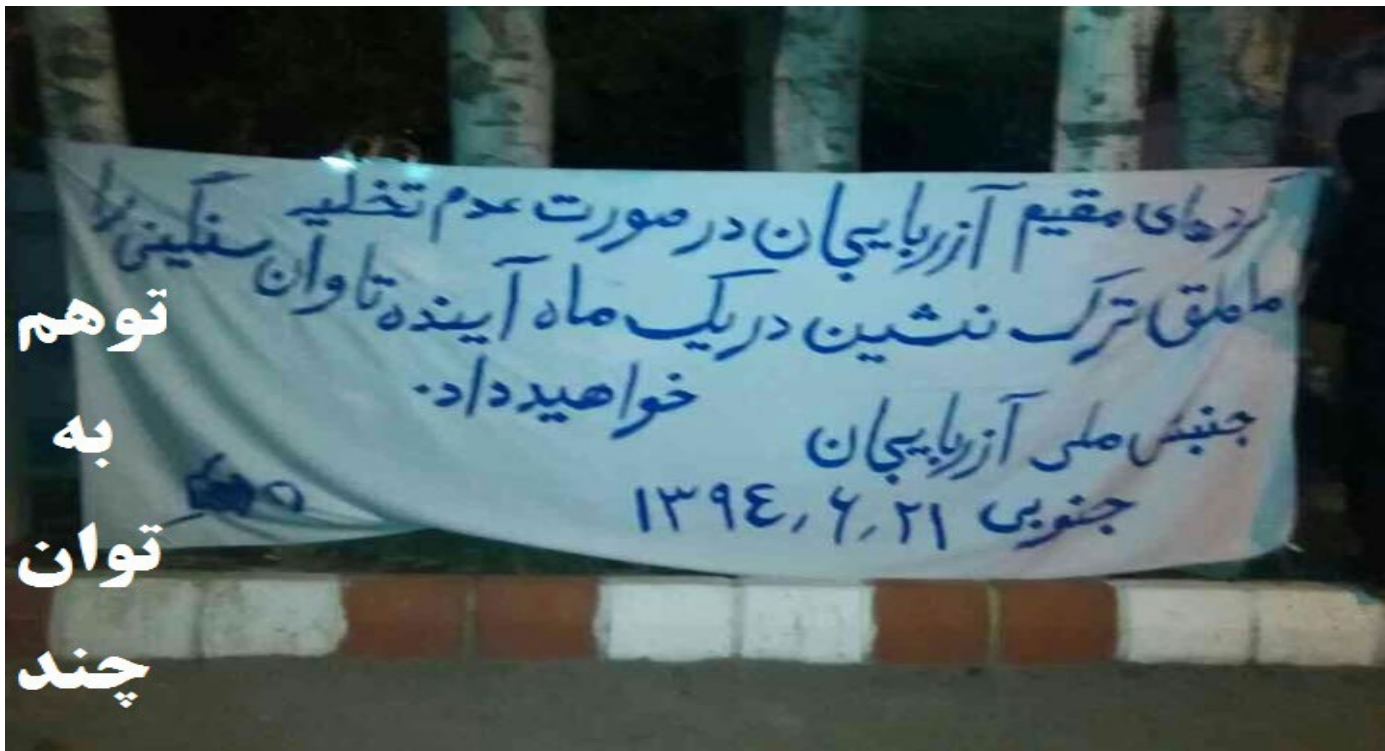 کردهای مقیم آزربایجان در صورت عدم تخلیه
ماملق ترک نشین در یک ماه آینده تاوان سنگینی را
خواهید داد.
جنبش ملی آزربایجان
جنوبی ۱۳۹٤٫۶٫۲۱
توهم
به
توان
چند